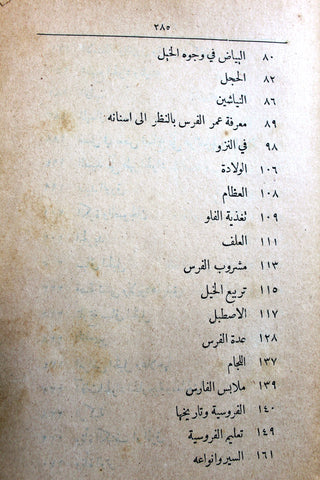 ٢٨٥
٨٠ البياض في وجوه الخيل
٨٢ الحجل
٨٦ النياشين
٨٩ معرفة عمر الفرس بالنظر الى اسنانه
٩٨ في النزو
١٠٦ الولادة
١٠٨ العظام
١٠٩ تغذية الفلو
١١١ العلف
١١٣ مشروب الفرس
١١٥ تربيع الخيل
١١٧ الاصطبل
١٢٨ عدة الفرس
١٣٧ اللجام
١٣٩ ملابس الفارس
١٤٠ الفروسية وتاريخها
١٤٩ تعليم الفروسية
١٦١ السير وانواعه